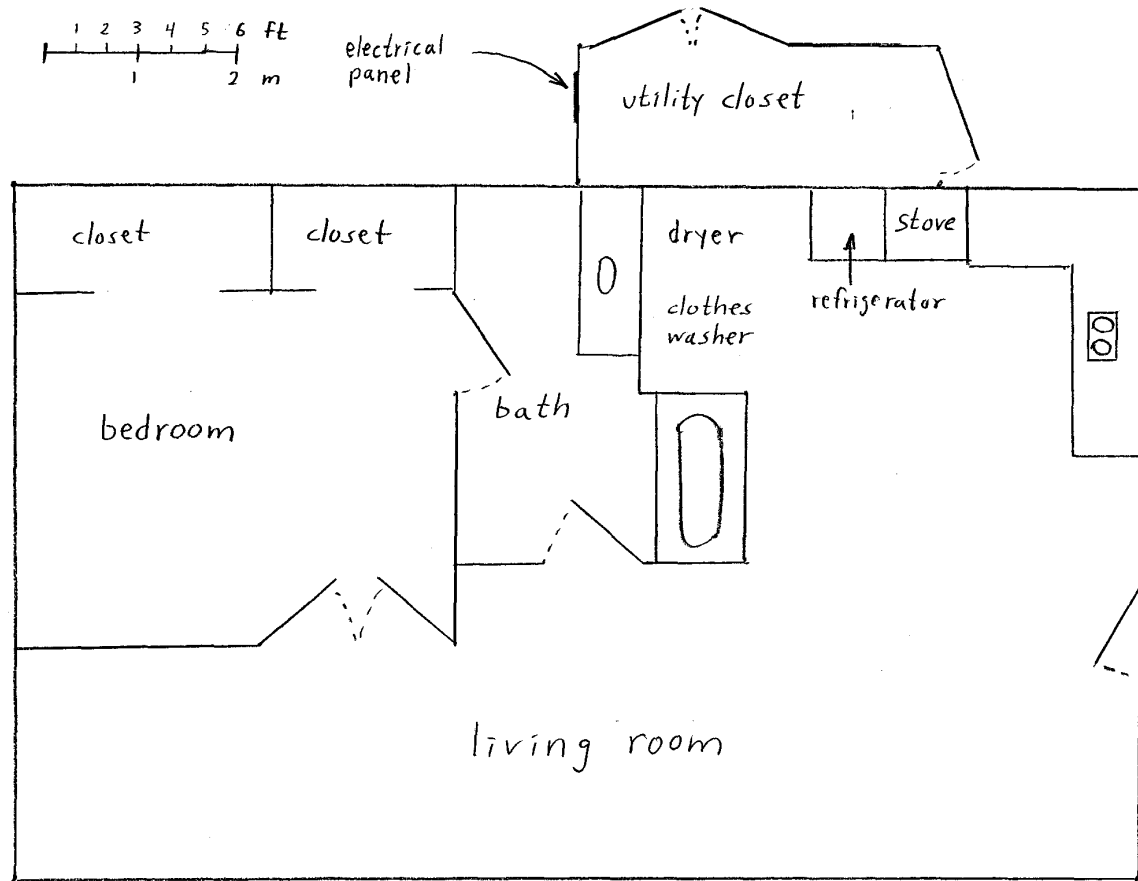 1 2 3 4 5 6 ft
1 2 m
electrical
panel
utility closet
closet
closet
dryer
stove
clothes
washer
refrigerator
bedroom
bath
living room